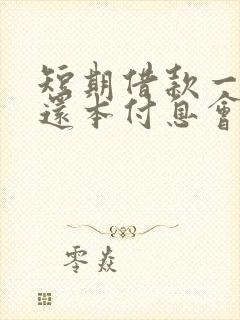 短期借款一
還本付息會
零焱